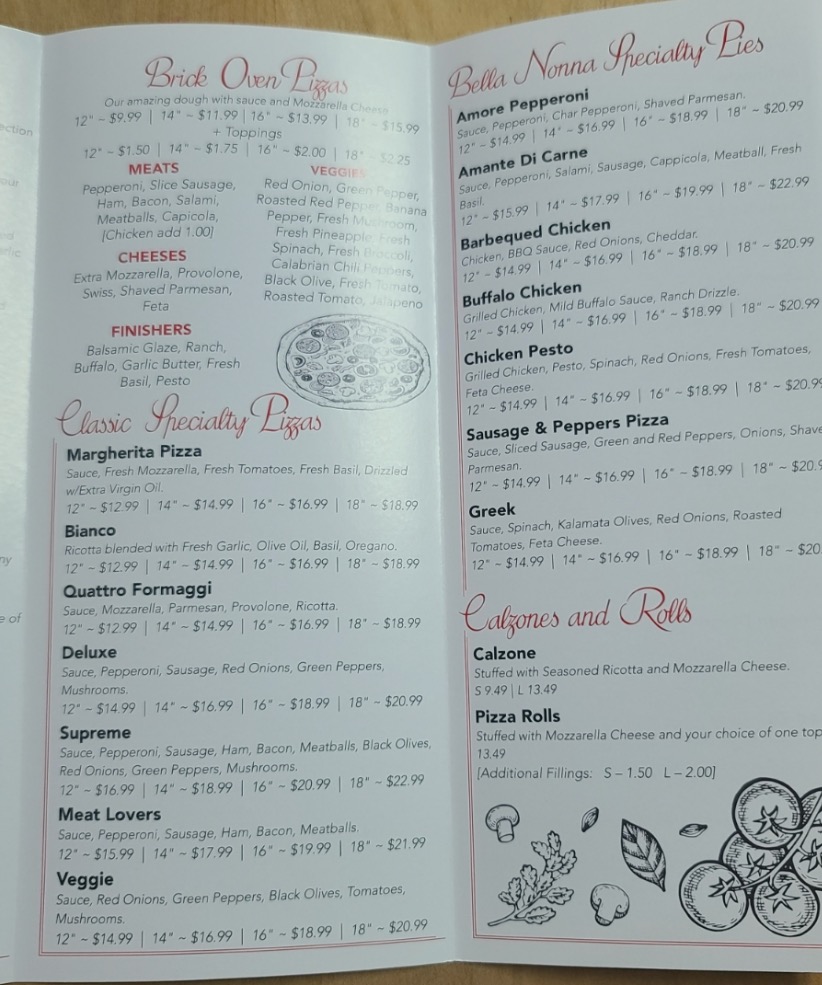 ection
our
ny
e of
Brick Oven Pizzas
Our amazing dough with sauce and Mozzarella Cheese
12" ~ $9.99 | 14" ~ $11.99 | 16" ~ $13.99 | 18" ~ $15.99
+ Toppings
12" ~ $1.50 | 14" ~ $1.75 | 16" ~ $2.00 | 18" ~ $2.25
MEATS
Pepperoni, Slice Sausage,
Ham, Bacon, Salami,
Meatballs, Capicola,
[Chicken add 1.00]
CHEESES
Extra Mozzarella, Provolone,
Swiss, Shaved Parmesan,
Feta
FINISHERS
Balsamic Glaze, Ranch,
Buffalo, Garlic Butter, Fresh
Basil, Pesto
VEGGIES
Red Onion, Green Pepper,
Roasted Red Pepper, Banana
Pepper, Fresh Mushroom,
Fresh Pineapple, Fresh
Spinach, Fresh Broccoli,
Calabrian Chili Peppers,
Black Olive, Fresh Tomato,
Roasted Tomato, Jalapeno
Classic Specialty Pizzas
Margherita Pizza
Sauce, Fresh Mozzarella, Fresh Tomatoes, Fresh Basil, Drizzled
w/Extra Virgin Oil.
12" ~ $12.99 | 14" ~ $14.99 | 16" ~ $16.99 | 18" ~ $18.99
Bianco
Ricotta blended with Fresh Garlic, Olive Oil, Basil, Oregano.
12" ~ $12.99 | 14" ~ $14.99 | 16" ~ $16.99 | 18" ~ $18.99
Quattro Formaggi
Sauce, Mozzarella, Parmesan, Provolone, Ricotta.
12" ~ $12.99 | 14" ~ $14.99 | 16" ~ $16.99 | 18" ~ $18.99
Deluxe
Sauce, Pepperoni, Sausage, Red Onions, Green Peppers,
Mushrooms.
12" ~ $14.99 | 14" ~ $16.99 | 16" ~ $18.99 | 18" ~ $20.99
Supreme
Sauce, Pepperoni, Sausage, Ham, Bacon, Meatballs, Black Olives,
Red Onions, Green Peppers, Mushrooms.
12" ~ $16.99 | 14" ~ $18.99 | 16" ~ $20.99 | 18" ~ $22.99
Meat Lovers
Sauce, Pepperoni, Sausage, Ham, Bacon, Meatballs.
12" ~ $15.99 | 14" ~ $17.99 | 16" ~ $19.99 | 18" ~ $21.99
Veggie
Sauce, Red Onions, Green Peppers, Black Olives, Tomatoes,
Mushrooms.
12" ~ $14.99 | 14" ~ $16.99 | 16" ~ $18.99 | 18" ~ $20.99
Bella Nonna Specialty Pies
Amore Pepperoni
Sauce, Pepperoni, Char Pepperoni, Shaved Parmesan.
12" ~ $14.99 | 14" ~ $16.99 | 16" ~ $18.99 | 18" ~ $20.99
Amante Di Carne
Sauce, Pepperoni, Salami, Sausage, Cappicola, Meatball, Fresh
Basil.
12" ~ $15.99 | 14" ~ $17.99 | 16" ~ $19.99 | 18" ~ $22.99
Barbequed Chicken
Chicken, BBQ Sauce, Red Onions, Cheddar.
12" ~ $14.99 | 14" ~ $16.99 | 16" ~ $18.99 | 18" ~ $20.99
Buffalo Chicken
Grilled Chicken, Mild Buffalo Sauce, Ranch Drizzle.
12" ~ $14.99 | 14" ~ $16.99 | 16" ~ $18.99 | 18" ~ $20.99
Chicken Pesto
Grilled Chicken, Pesto, Spinach, Red Onions, Fresh Tomatoes,
Feta Cheese.
12" ~ $14.99 | 14" ~ $16.99 | 16" ~ $18.99 | 18" ~ $20.99
Sausage & Peppers Pizza
Sauce, Sliced Sausage, Green and Red Peppers, Onions, Shave
Parmesan.
12" ~ $14.99 | 14" ~ $16.99 | 16" ~ $18.99 | 18" ~ $20.9
Greek
Sauce, Spinach, Kalamata Olives, Red Onions, Roasted
Tomatoes, Feta Cheese.
12" ~ $14.99 | 14" ~ $16.99 | 16" ~ $18.99 | 18" ~ $20.
Calzones and Rolls
Calzone
Stuffed with Seasoned Ricotta and Mozzarella Cheese.
S 9.49 | L 13.49
Pizza Rolls
Stuffed with Mozzarella Cheese and your choice of one top
13.49
[Additional Fillings: S – 1.50 L – 2.00]